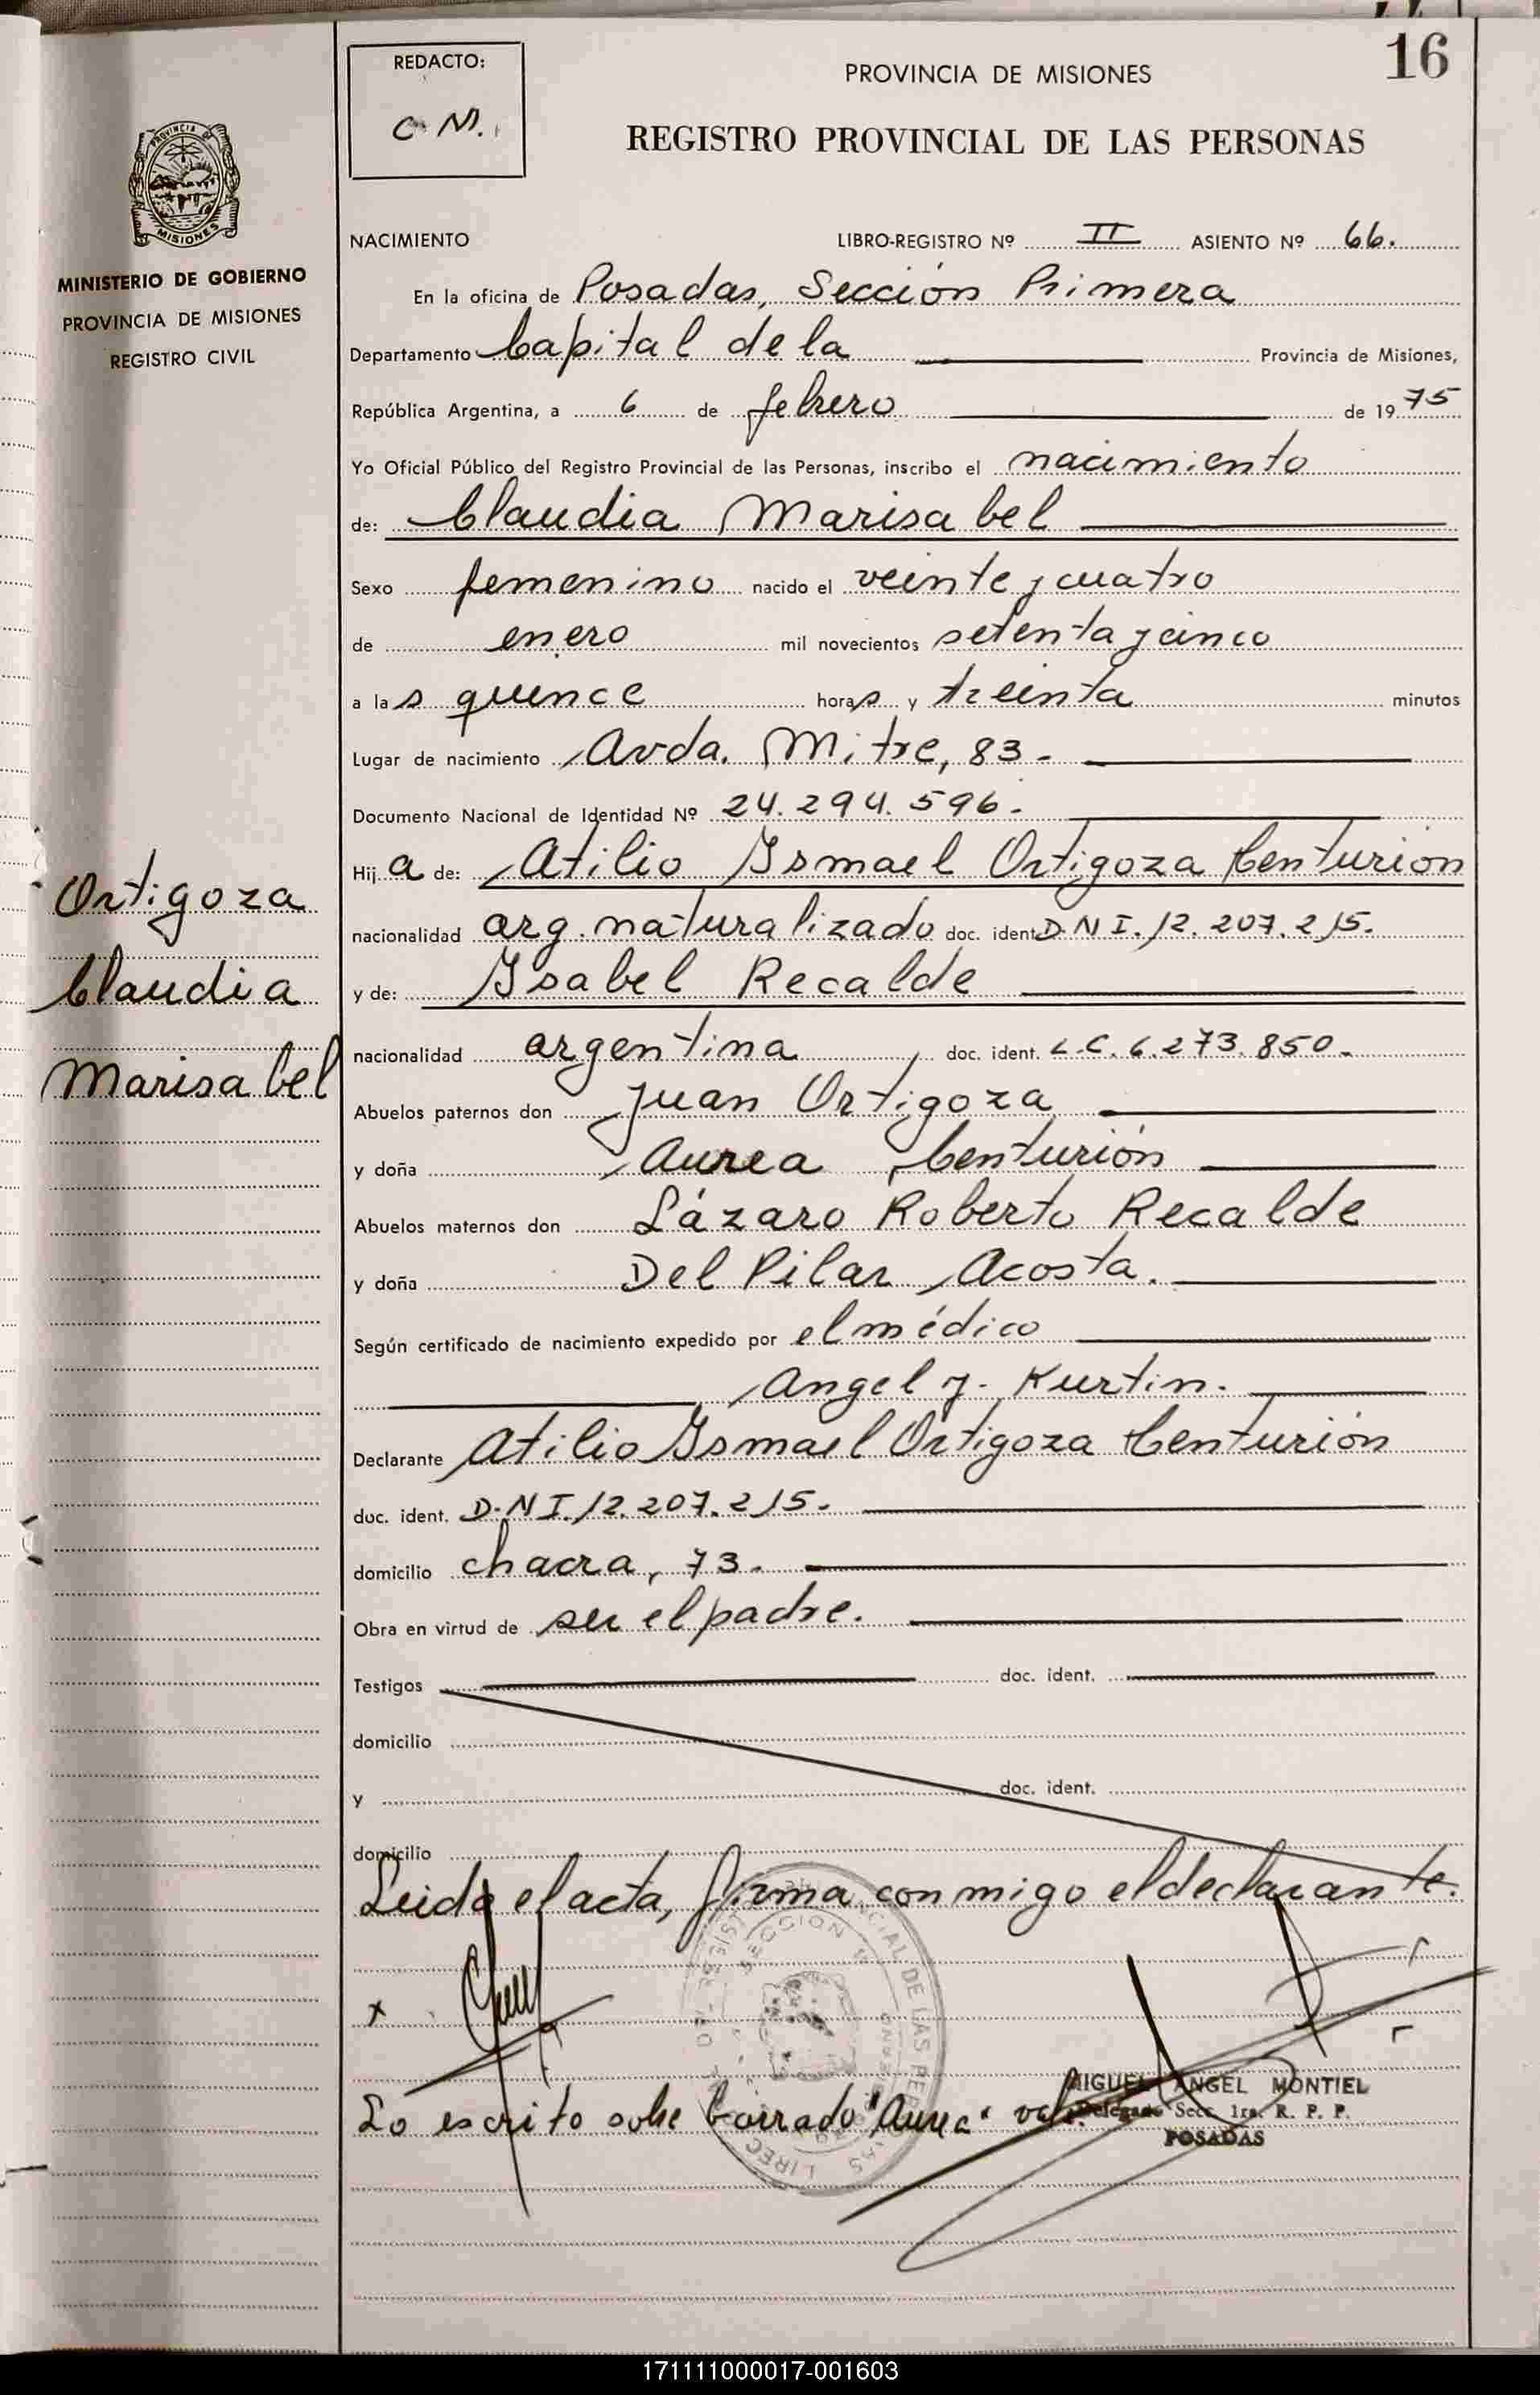 16
REDACTO:
C. M.
PROVINCIA DE MISIONES
REGISTRO PROVINCIAL DE LAS PERSONAS
PROVINCIA DE
MISIONES
MINISTERIO DE GOBIERNO
PROVINCIA DE MISIONES
REGISTRO CIVIL
NACIMIENTO LIBRO-REGISTRO Nº II ASIENTO Nº 66.
En la oficina de Posadas, Sección Primera
Departamento Capital de la Provincia de Misiones,
República Argentina, a 6 de febrero de 1975
Yo Oficial Público del Registro Provincial de las Personas, inscribo el nacimiento
de: Claudia Marisabel
Sexo femenino nacido el veinte y cuatro
de enero mil novecientos setenta y cinco
a las quince horas y treinta minutos
Lugar de nacimiento Avda. Mitre, 83.
Documento Nacional de Identidad Nº 24.294.596.
Hija de: Atilio Ismael Ortigoza Centurión
nacionalidad arg. naturalizado doc. ident. D.N I. 12.207.215.
y de: Isabel Recalde
nacionalidad argentina doc. ident. L.C. 6.273.850.
Abuelos paternos don Juan Ortigoza
y doña Aurea Centurión
Abuelos maternos don Lázaro Roberto Recalde
y doña Del Pilar Acosta.
Según certificado de nacimiento expedido por el médico
Angel J. Kurtin.
Declarante Atilio Ismael Ortigoza Centurión
doc. ident. D.N I. 12.207.215.
domicilio chacra, 73.
Obra en virtud de ser el padre.
Testigos doc. ident.
domicilio
y doc. ident.
domicilio
Leida el acta, firma conmigo el declarante.
x
Lo escrito sobre borrado "Aurea" vale.
MIGUEL ANGEL MONTIEL
Delegado Secc. 1ra. R. P. P.
POSADAS
Ortigoza
Claudia
Marisabel
171111000017-001603